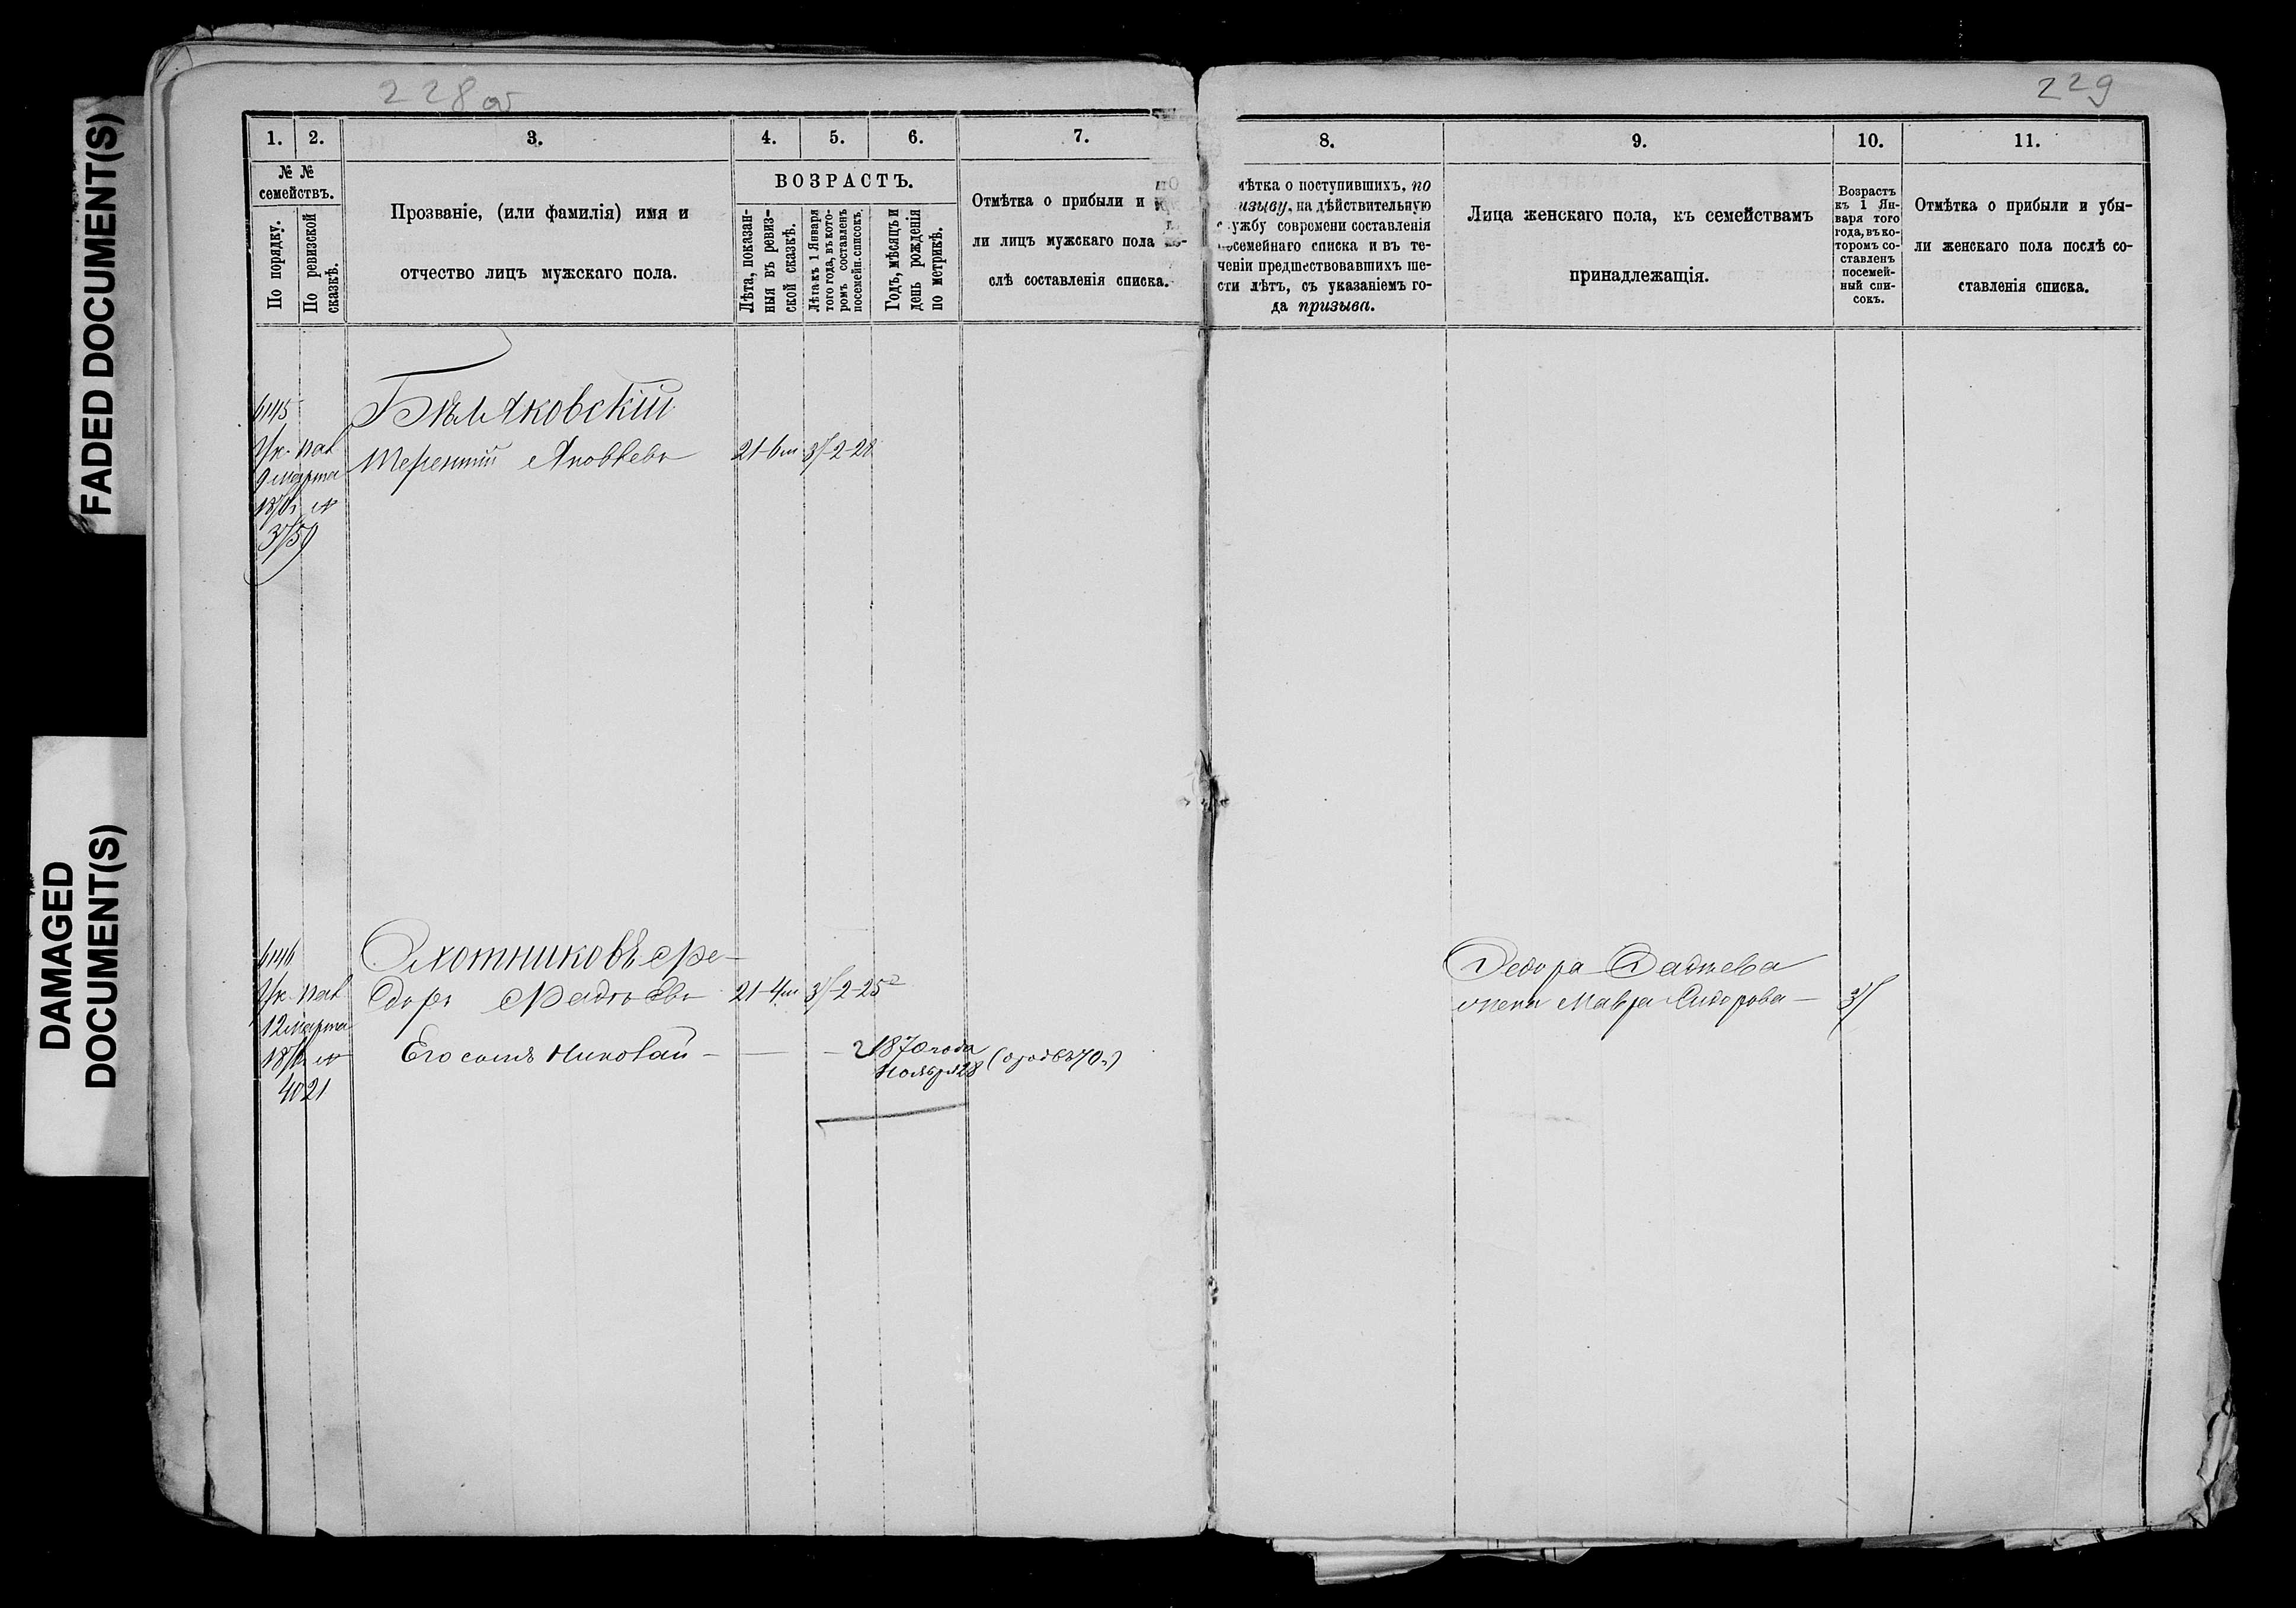 228 об
229
FADED DOCUMENT(S)
DAMAGED
DOCUMENT(S)
1. 2. 3. 4. 5. 6. 7.
№ №
семействъ.
По порядку.
По ревизской
сказкѣ.
Прозваніе, (или фамилія) имя и
отчество лицъ мужскаго пола.
ВОЗРАСТЪ.
Лѣта, показан-
ныя въ ревиз-
ской сказкѣ.
Лѣта къ 1 Января
того года, въ кото-
ромъ составленъ
посемейн. списокъ.
Годъ, мѣсяцъ и
день рожденія
по метрикѣ.
Отмѣтка о прибыли и
ли лицъ мужскаго пола по-
слѣ составленія списка.
8. 9. 10. 11.
мѣтка о поступившихъ, по
изыву, на дѣйствительную
службу современи составленія
посемейнаго списка и въ те-
ченіи предшествовавшихъ ше-
сти лѣтъ, съ указаніемъ го-
да призыва.
Лица женскаго пола, къ семействамъ
принадлежащія.
Возрастъ
къ 1 Ян-
варя того
года, въ ко-
торомъ со-
ставленъ
посемей-
ный спи-
сокъ.
Отмѣтка о прибыли и убы-
ли женскаго пола послѣ со-
ставленія списка.
6145
Бѣляковскій
Ук. пал
Терентій Яковлевъ 21-6м 37-2-28
9 марта
3759
6146
Охотниковъ Ѳе-
Ук. пал
доръ Ѳадѣевъ 21-4м 37-2-25
12 марта
Его сынъ Николай — — — 2 1870 года
Ноября 28
4021
Ѳедора Ѳадѣева
жена Мавра Сидорова — 37